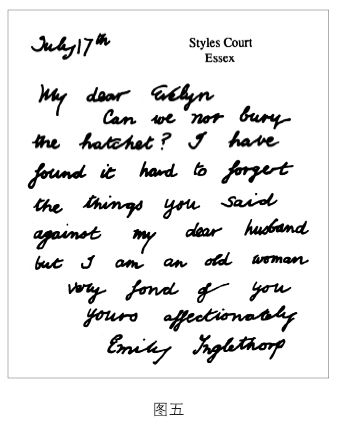 July 17th
Styles Court
Essex
My dear Evelyn
Can we not bury
the hatchet? I have
found it hard to forgert
the things you said
against my dear husband
but I am an old woman
very fond of you
yours affectionately
Emily Inglethorp
图五